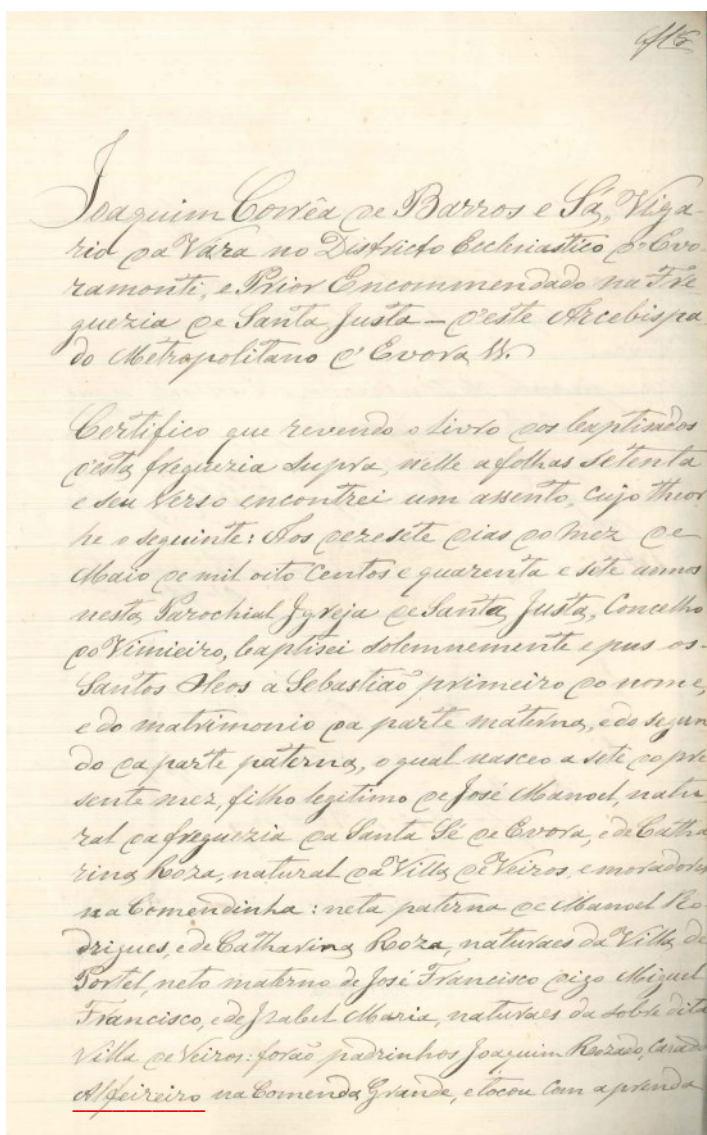 Joaquim Corrêa de Barros e Sá, Viga-
rio da Vára no Districto Ecclesiastico d'Evo-
ramonte, e Prior Encommendado na Fre
guezia de Santa Justa — d'este Arcebispa-
do Metropolitano d'Evora &.
Certifico que revendo o Livro dos baptisados
d'esta freguezia supra, nelle a folhas setenta
e seu verso encontrei um assento, cujo theor
he o seguinte: Aos dezesete dias do mez de
Maio de mil oito centos e quarenta e sete annos
nesta Parochial Igreja de Santa Justa, Concelho
do Vimieiro, baptisei solemnemente e pus os
Santos Oleos a Sebastião primeiro do nome,
e do matrimonio da parte materna, e do segun
do da parte paterna, o qual nasceo a sete do pre
sente mez, filho legitimo de José Manoel, natu
ral da freguezia da Santa Sé de Evora, e de Catha
rina Roza, natural da Villa de Veiros, e moradores
na Comendinha: neta paterna de Manoel Ro
drigues, e de Catharina Roza, naturaes da Villa de
Portel, neto materno de José Francisco digo Miguel
Francisco, e de Izabel Maria, naturaes da sobre dita
Villa de Veiros: forão padrinhos Joaquim Rozado, Casado
Alfeireiro na Comenda Grande, e tocou com a prenda